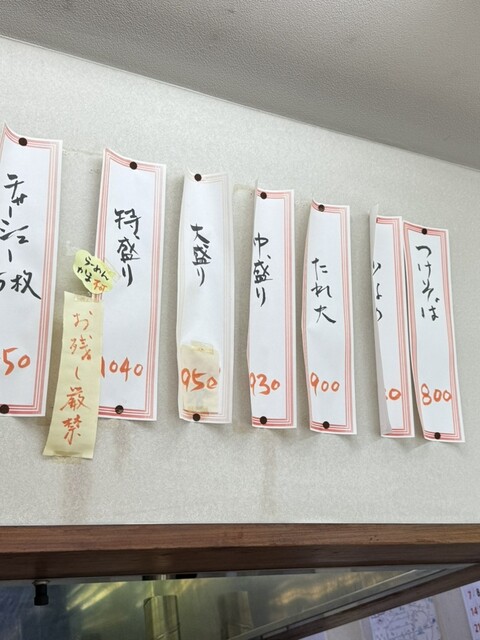 つけそば
800
たれ大
900
中盛り
930
大盛り
950
特盛り
1040
らーめん
お残し厳禁
チャーシュー
5枚
50